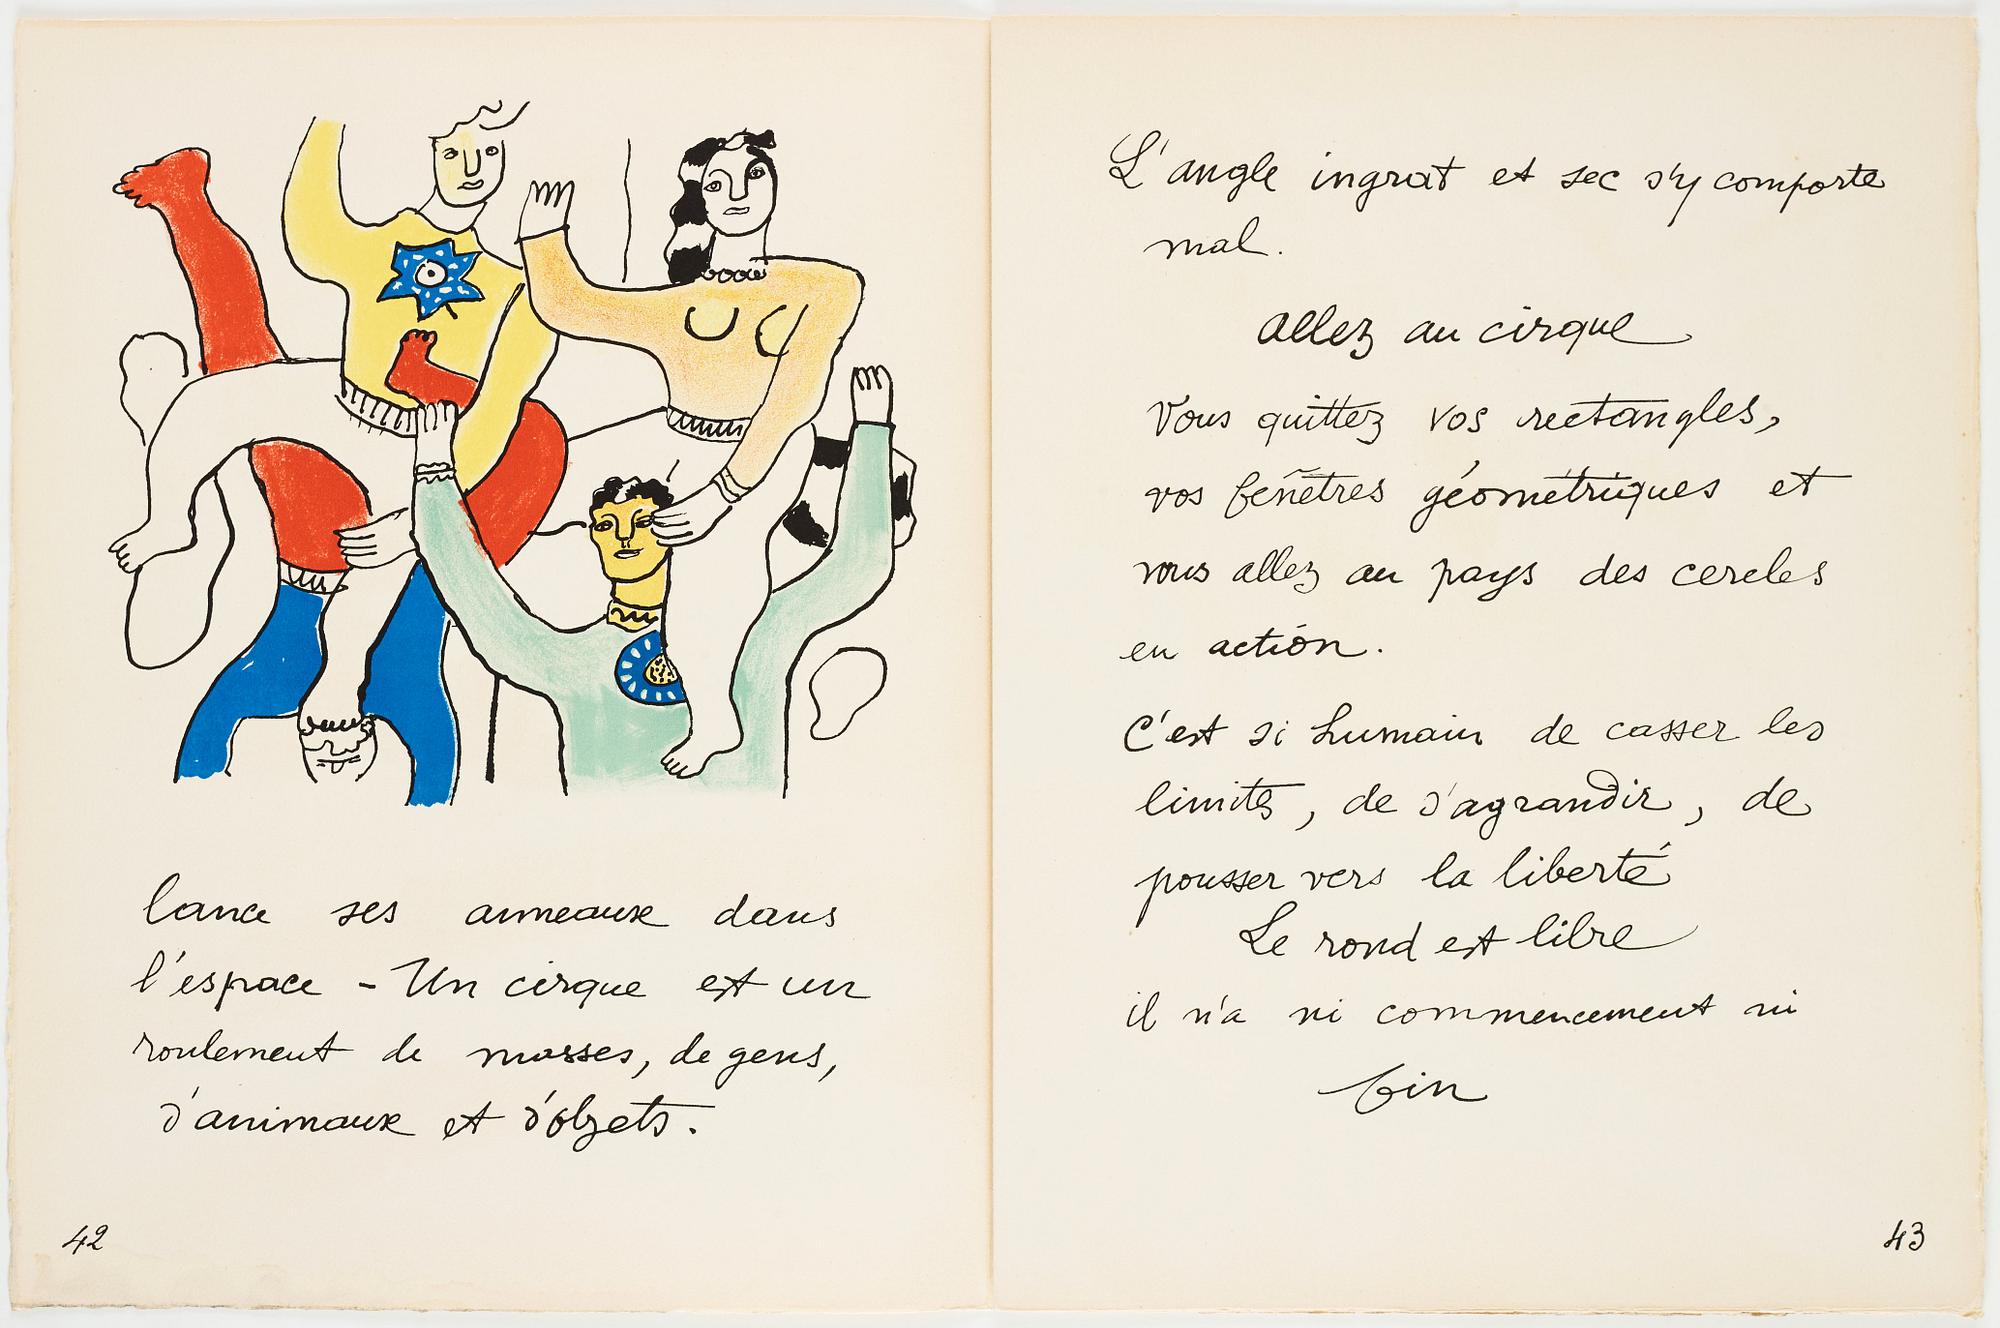 lance ses anneaux dans
l'espace - Un cirque est un
roulement de masses, de gens,
d'animaux et d'objets.
42
L'angle ingrat et sec s'y comporte
mal.
Allez au cirque
Vous quittez vos rectangles,
vos fenêtres géométriques et
vous allez au pays des cercles
en action.
C'est si humain de casser les
limites, de s'agrandir, de
pousser vers la liberté
Le rond est libre
il n'a ni commencement ni
fin
43